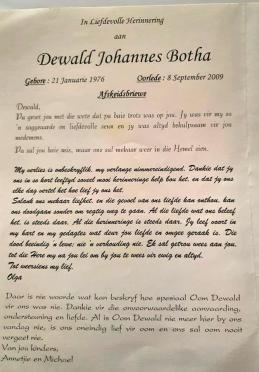 In Liefdevolle Herinnering
aan
Dewald Johannes Botha
Gebore : 21 Januarie 1976 Oorlede : 8 September 2009
Afskeidsbriewe
Dewald,
Pa groet jou met die wete dat pa baie trots was op jou. Jy was vir my so
'n saggeaarde en liefdevolle seun en jy was altyd behulpsaam vir jou
medemens.
Pa sal jou baie mis, maar ons sal mekaar weer in die Hemel sien.
My verlies is onbeskryflik, my verlange nimmereindigend. Dankie dat jy
ons in so kort leeftyd soveel mooi herinneringe help bou het, en dat jy ons
elke dag vertel het hoe lief jy ons het.
Solank ons mekaar liefhet, en die gevoel van ons liefde kan onthou, kan
ons doodgaan sonder om regtig weg te gaan. Al die liefde wat ons beleef
het, is steeds daar. Al die herinneringe is steeds daar. Jy leef voort in
my hart en my gedagtes wat deur jou liefde en omgee geraak is. Die
dood beeindig 'n lewe: nie 'n verhouding nie. Ek sal getrou wees aan jou,
tot die Here my na jou lei om by jou te wees vir ewig en altyd.
Tot weersiens my lief.
Olga
Daar is nie woorde wat kan beskryf hoe spesiaal Oom Dewald
vir ons was nie. Dankie vir die onvoorwaardelike aanvaarding,
ondersteuning en liefde. Al is Oom Dewald nie meer hier by ons
vandag nie, is ons oneindig lief vir oom en ons sal oom nooit
vergeet nie.
Van jou kinders,
Annetjie en Michael